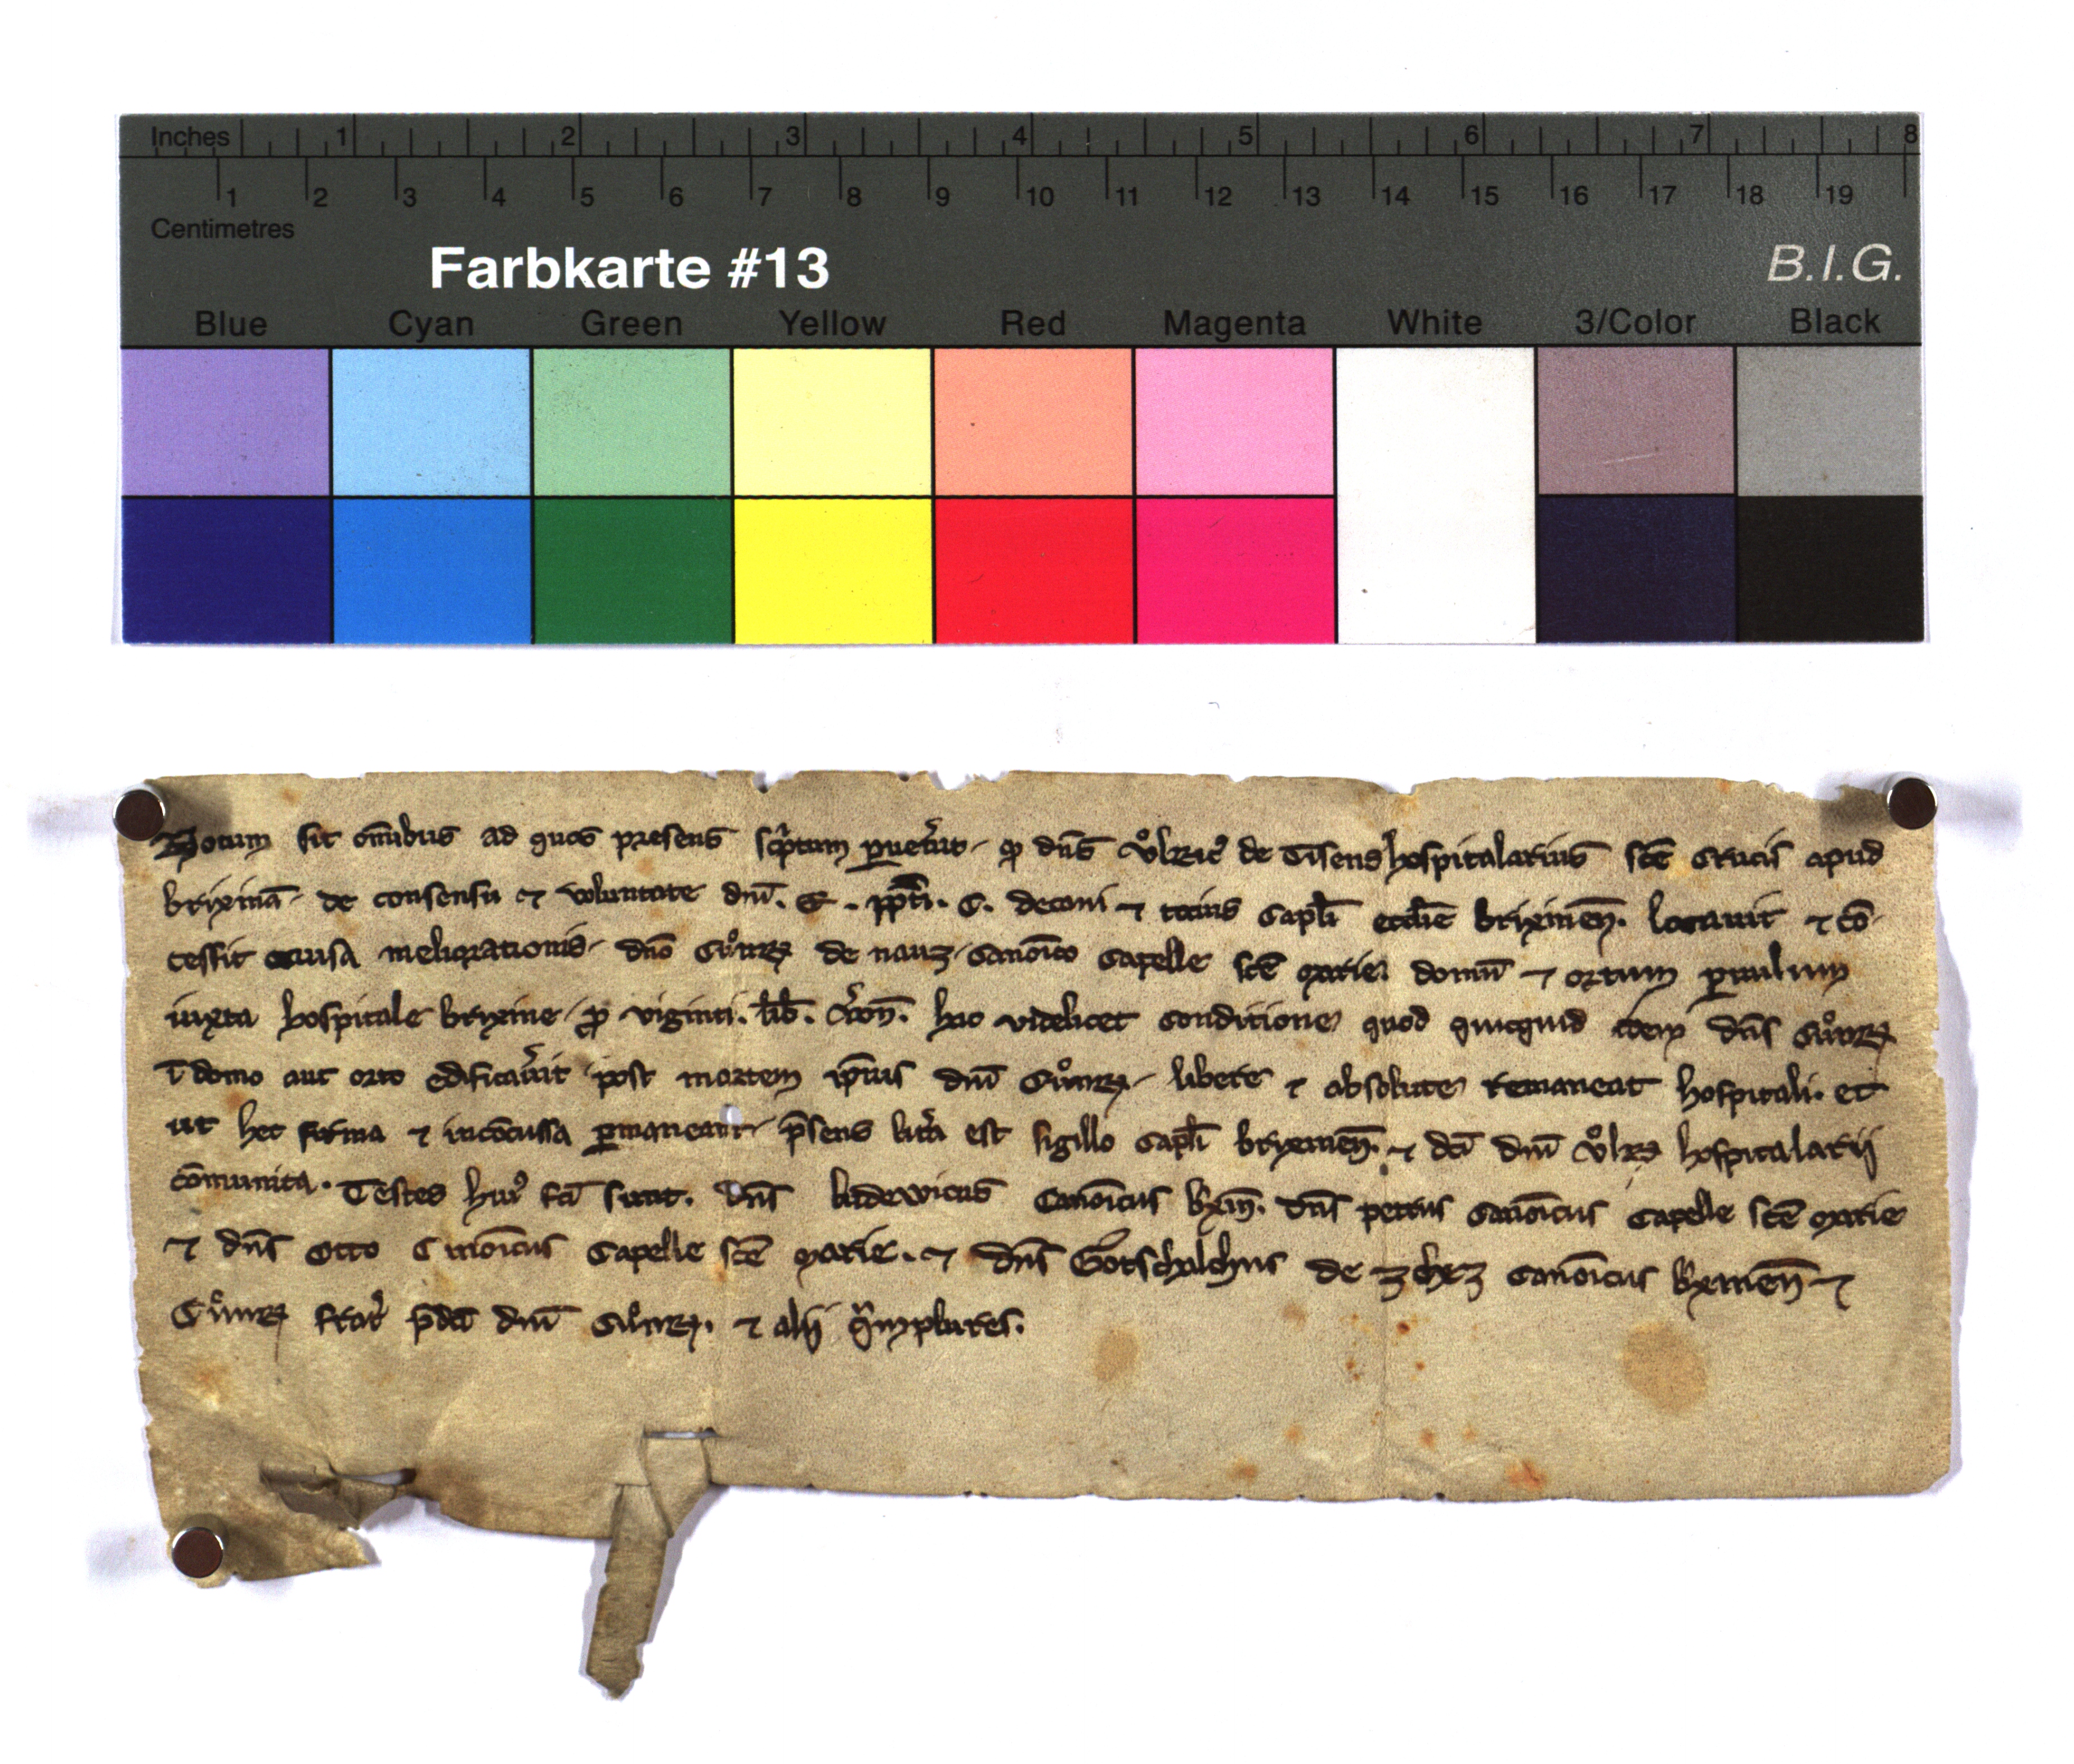 Inches 1 2 3 4 5 6 7 8
1 2 3 4 5 6 7 8 9 10 11 12 13 14 15 16 17 18 19
Centimetres
Farbkarte #13
B.I.G.
Blue Cyan Green Yellow Red Magenta White 3/Color Black
Notum sit om̄ibus ad quos presens sc͛ptum ꝑuen͛int ꝙ dn̄s Vͦlric᾽ de Tisens hospitalarius sc̄e Crucis apud
brixinā de consensu ⁊ voluntate dn̄i. E. p̄pt̄i. C. decani ⁊ tocius Capl̄i eccl̄ie brixinen̄. locauit ⁊ cō
cessit causa meliorationis dn̄o Cuͦnrꝫ de nauꝫ Canon̄ico Capelle sc̄e Marie domū ⁊ ortum ꝑuulum
iuxta hospitale brixine ꝓ viginti. lib̄. v͛on̄. hac videlicet conditione quod quicquid idem dn̄s Cuͦnrꝫ
ī domo aut orto edificau͛it post mortem ip̄ius dn̄i Cuͦnrꝫ libere ⁊ absolute remaneat hospitali. et
ut hec firma ⁊ incōcussa ꝑmaneant p̄sens litt͛a est sigillo Capl̄i brixinen̄. ⁊ dc̄i dn̄i Vͦlrꝫ hospitalarij
cōmunita. Testes hui᾽ fc̄i sunt. Dn̄s ludewicus Canon̄icus bxin̄. dn̄s petrus Canon̄icus Capelle sc̄e Marie
⁊ dn̄s Otto Canon̄icus Capelle sc̄e Marie. ⁊ dn̄s Gotschalchus de Canon̄icus bxinen̄ ⁊
Cuͦnrꝫ frat͛ p̄dc̄i dn̄i Cuͦnrꝫ. ⁊ alij q͛mplures.